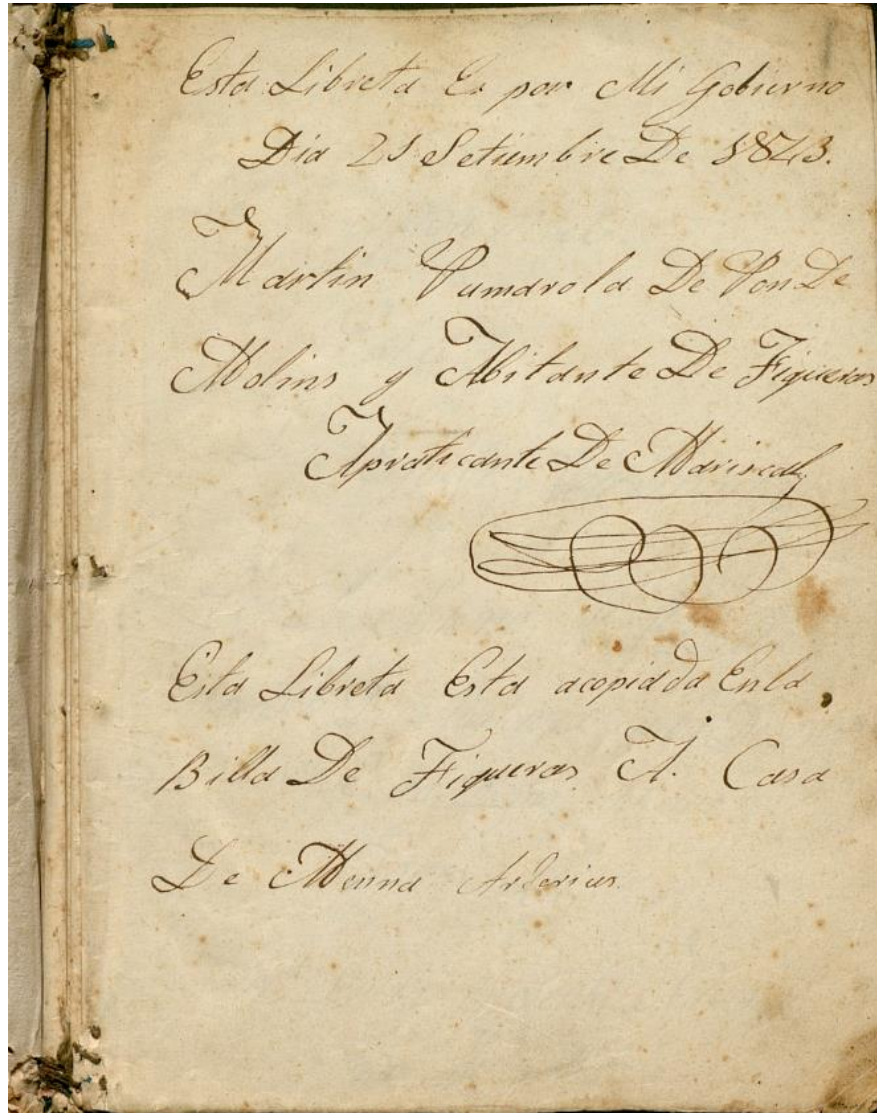 Esta Libreta Es por Mi Gobierno
Dia 21 Setiembre De 1843.
Martin Pumarola De Pon De
Molins y Abitante De Figueras
Apraticante De Mariscal
Esta Libreta Esta acopiada Enla
Billa De Figueras A. Casa
De